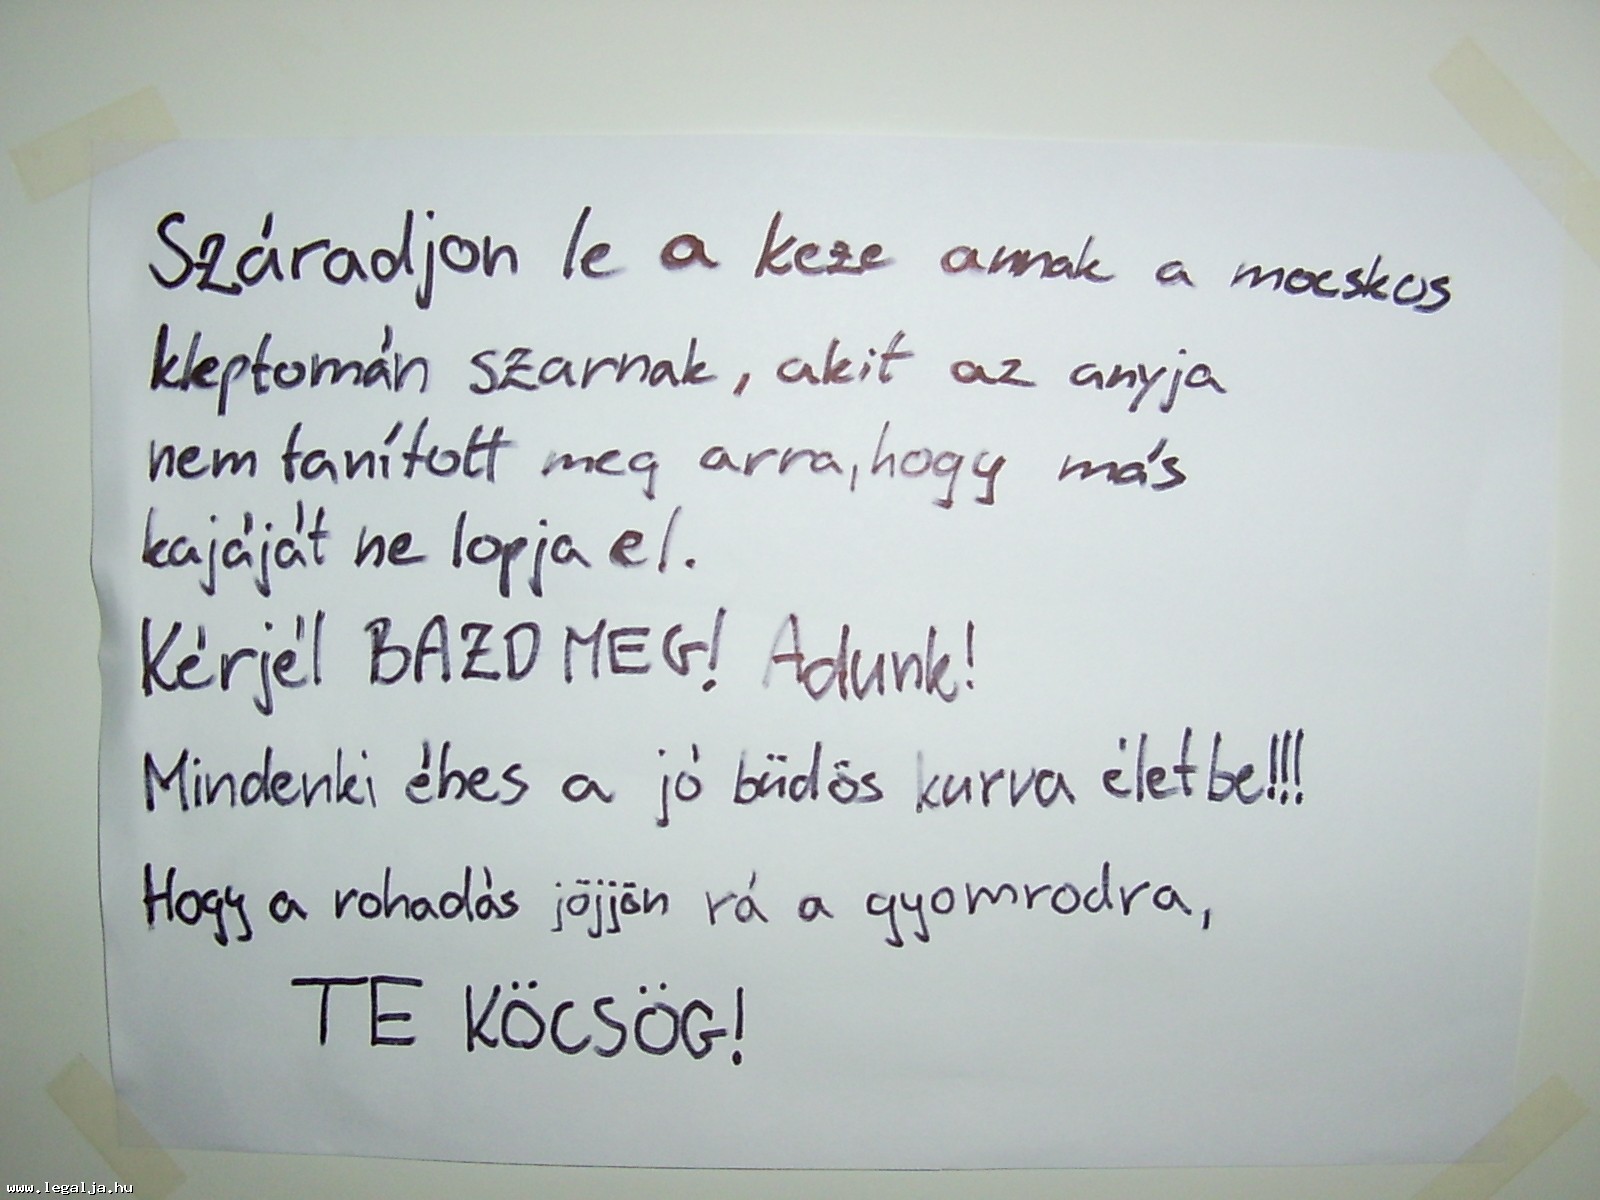 Száradjon le a keze annak a mocskos
kleptomán szarnak, akit az anyja
nem tanított meg arra, hogy más
kajáját ne lopja el.
Kérjél BAZD MEG! Adunk!
Mindenki éhes a jó büdös kurva életbe!!!
Hogy a rohadás jöjjön rá a gyomrodra,
TE KÖCSÖG!
www.legalja.hu